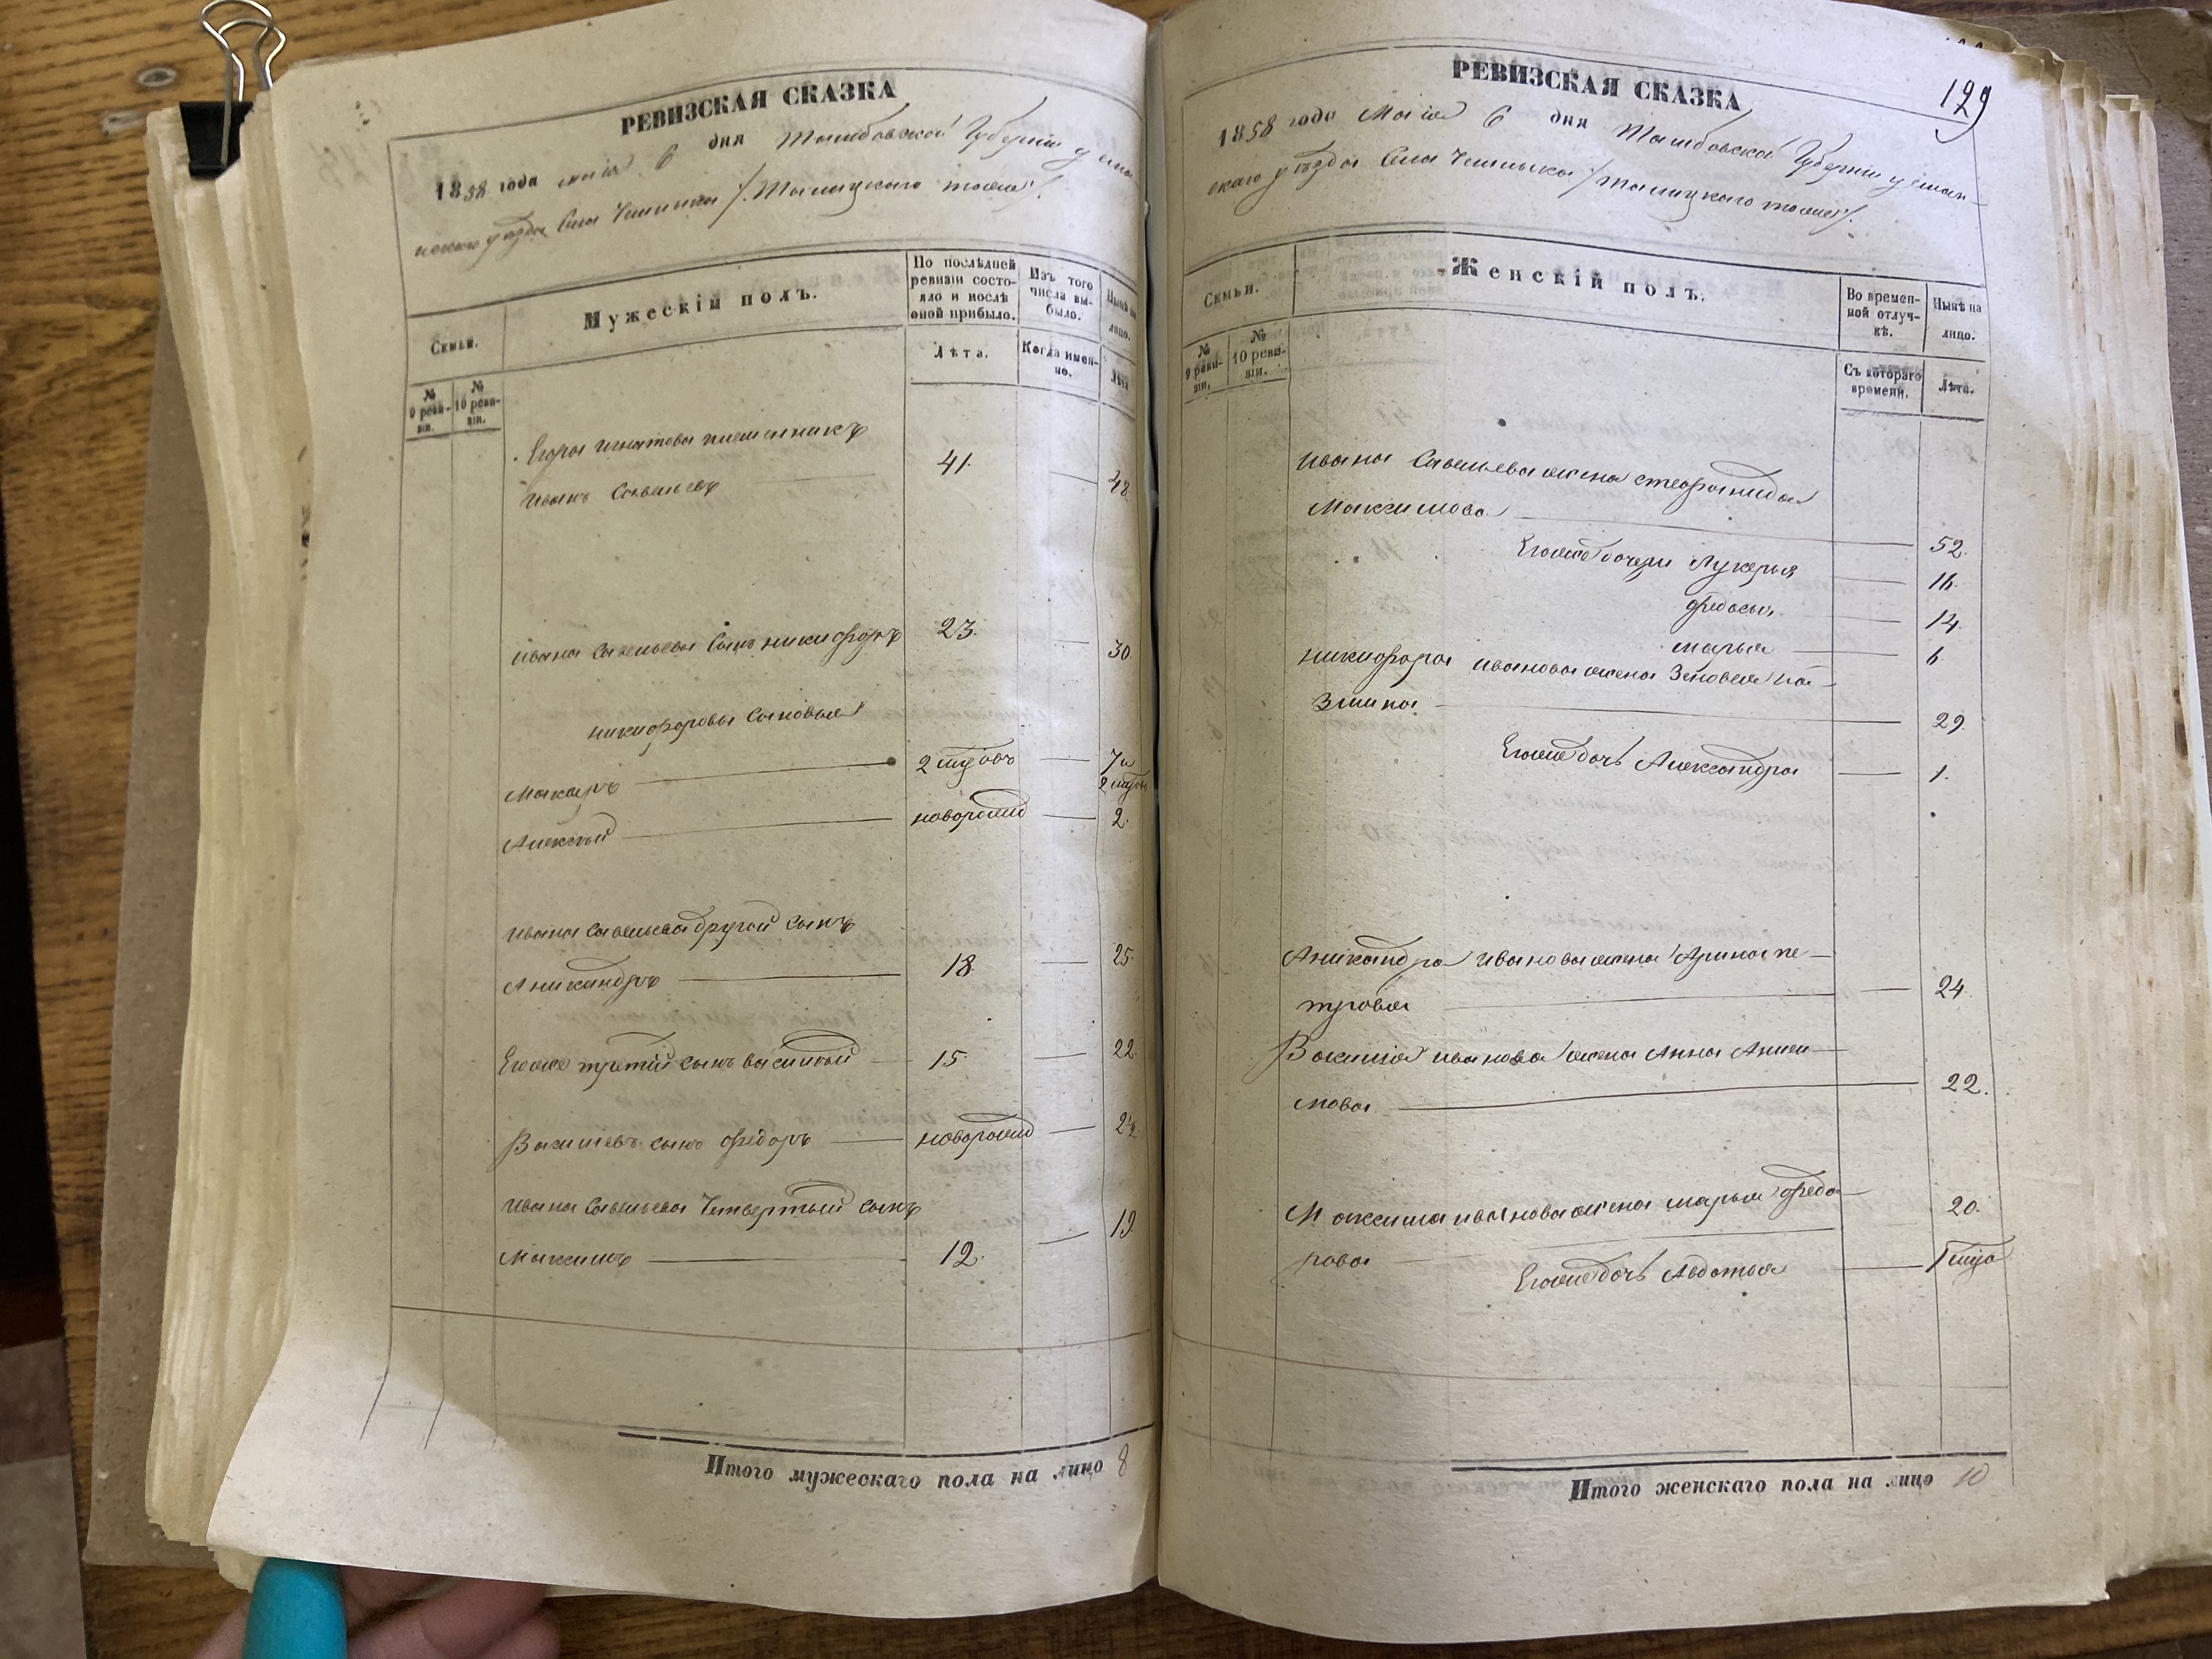 РЕВИЗСКАЯ СКАЗКА
1858 года маія 6 дня Тамбовской Губерніи усман
скаго уѣзда Села Чемлыка /:Талицкаго тожъ:/
Семьи.
Мужескій полъ.
По послѣдней ревизіи состояло и послѣ оной прибыло.
Изъ того числа выбыло.
Нынѣ на лицо.
№ 9 ревизіи.
№ 10 ревизіи.
Лѣта.
Когда именно.
Лѣта
Егора игнатова племянникъ
иванъ Савельевъ 41. 48
ивана Савельева Сынъ никифоръ 23. 30.
никифоровы Сыновья
Макаръ 7и
Алексѣй новорожд 2.
ивана Савельева другой Сынъ
Аникандръ 18. 25.
Егоже третій сынъ василій 15. 22
Васильевъ сынъ фёдоръ новорожд 2½
ивана Савельева Четвертый сынъ
Максимъ 12. 19
Итого мужескаго пола на лицо 8
РЕВИЗСКАЯ СКАЗКА
129
1858 года Маія 6 дня Тамбовской Губерніи усман-
скаго уѣзда Села Чемлыка /:талицкаго тожъ:/
Семьи.
Женскій полъ.
Во временной отлучкѣ.
Нынѣ на лицо.
№ 9 ревизіи.
№ 10 ревизіи.
Съ котораго времени.
Лѣта.
ивана Савельева жена стефанида
Максимова 52.
Егоже дочери Лукерья 16.
федосья 14.
марья 6.
никифора иванова жена Зеновея
29.
Егоже дочь Александра 1.
Аникандра иванова жена Арина пе-
трова 24.
Василія иванова жена Анна
22.
Максима иванова жена марья федо-
рова 20.
Егоже дочь Авдотья
Итого женскаго пола на лицо 10